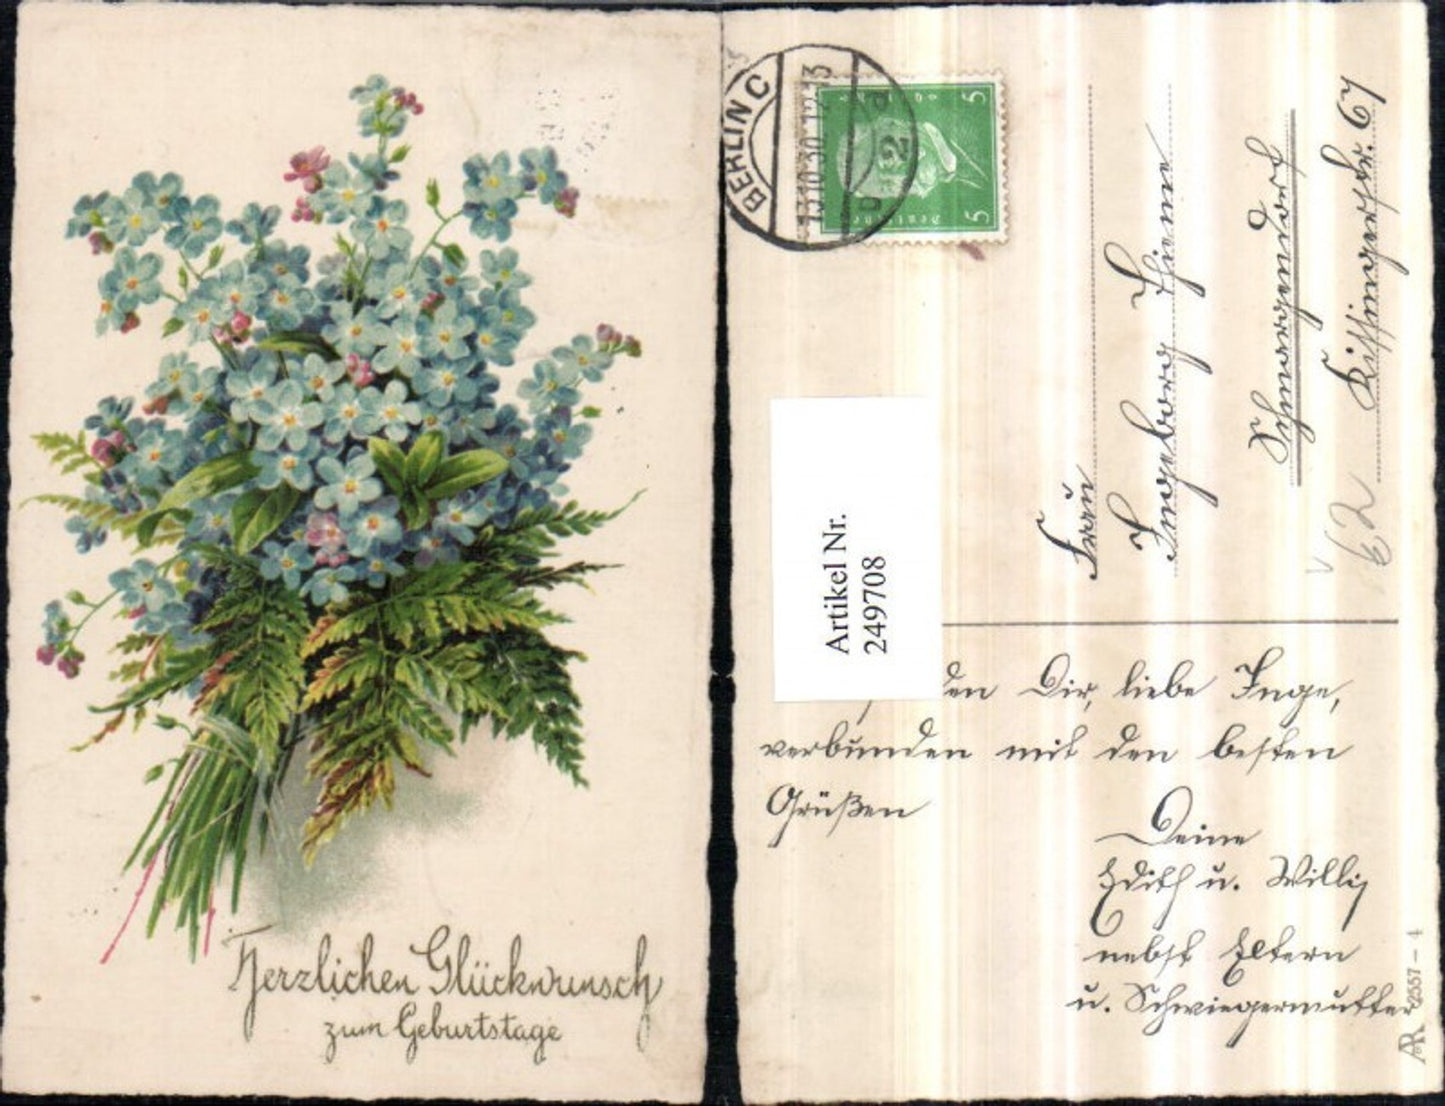 Herzlichen Glückwunsch
zum Geburtstage
BERLIN C
13.10.30.12-13
5
5
Frau
Ingeborg Thieme
Schmargendorf
Kissingerstr. 67
62
Artikel Nr.
249708
den Dir, liebe Inge,
verbunden mit den besten
Grüßen
Deine
Edith u. Willi
nebst Eltern
u. Schwiegermutter
AR 2557 – 4